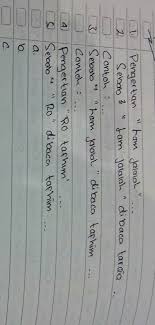 1) Pengertian "Lam Jalalah" ....
2) Sebab² "Lam Jalalah" dibaca tarqiq ...
Contoh : ...
3) Sebab² "Lam Jalalah" dibaca tafhim ...
Contoh : ...
4) Pengertian "Ro tafhim" ...
5) Sebab² "Ro" dibaca tafhim ...
a
b
c